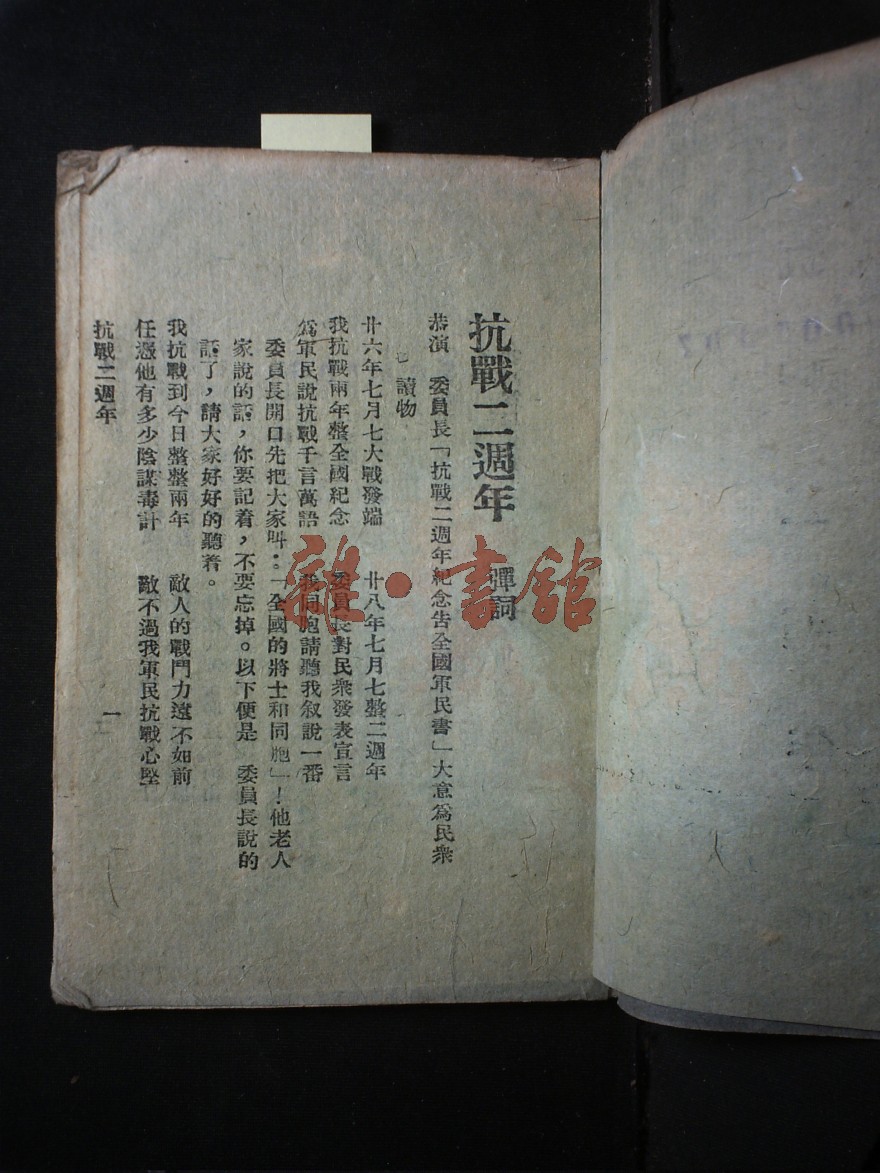 抗戰二週年　彈詞
恭演　委員長「抗戰二週年紀念告全國軍民書」大意爲民衆
讀物
廿六年七月七大戰發端　廿八年七月七整二週年
我抗戰兩年整全國紀念　委員長對民衆發表宣言
爲軍民說抗戰千言萬語　我同胞請聽我叙說一番
委員長開口先把大家叫：「全國的將士和同胞」！他老人
家說的話，你要記着，不要忘掉。以下便是　委員長說的
話了，請大家好好的聽着。
我抗戰到今日整整兩年　敵人的戰鬥力遠不如前
任憑他有多少陰謀毒計　敵不過我軍民抗戰心堅
抗戰二週年　一
雜·書館